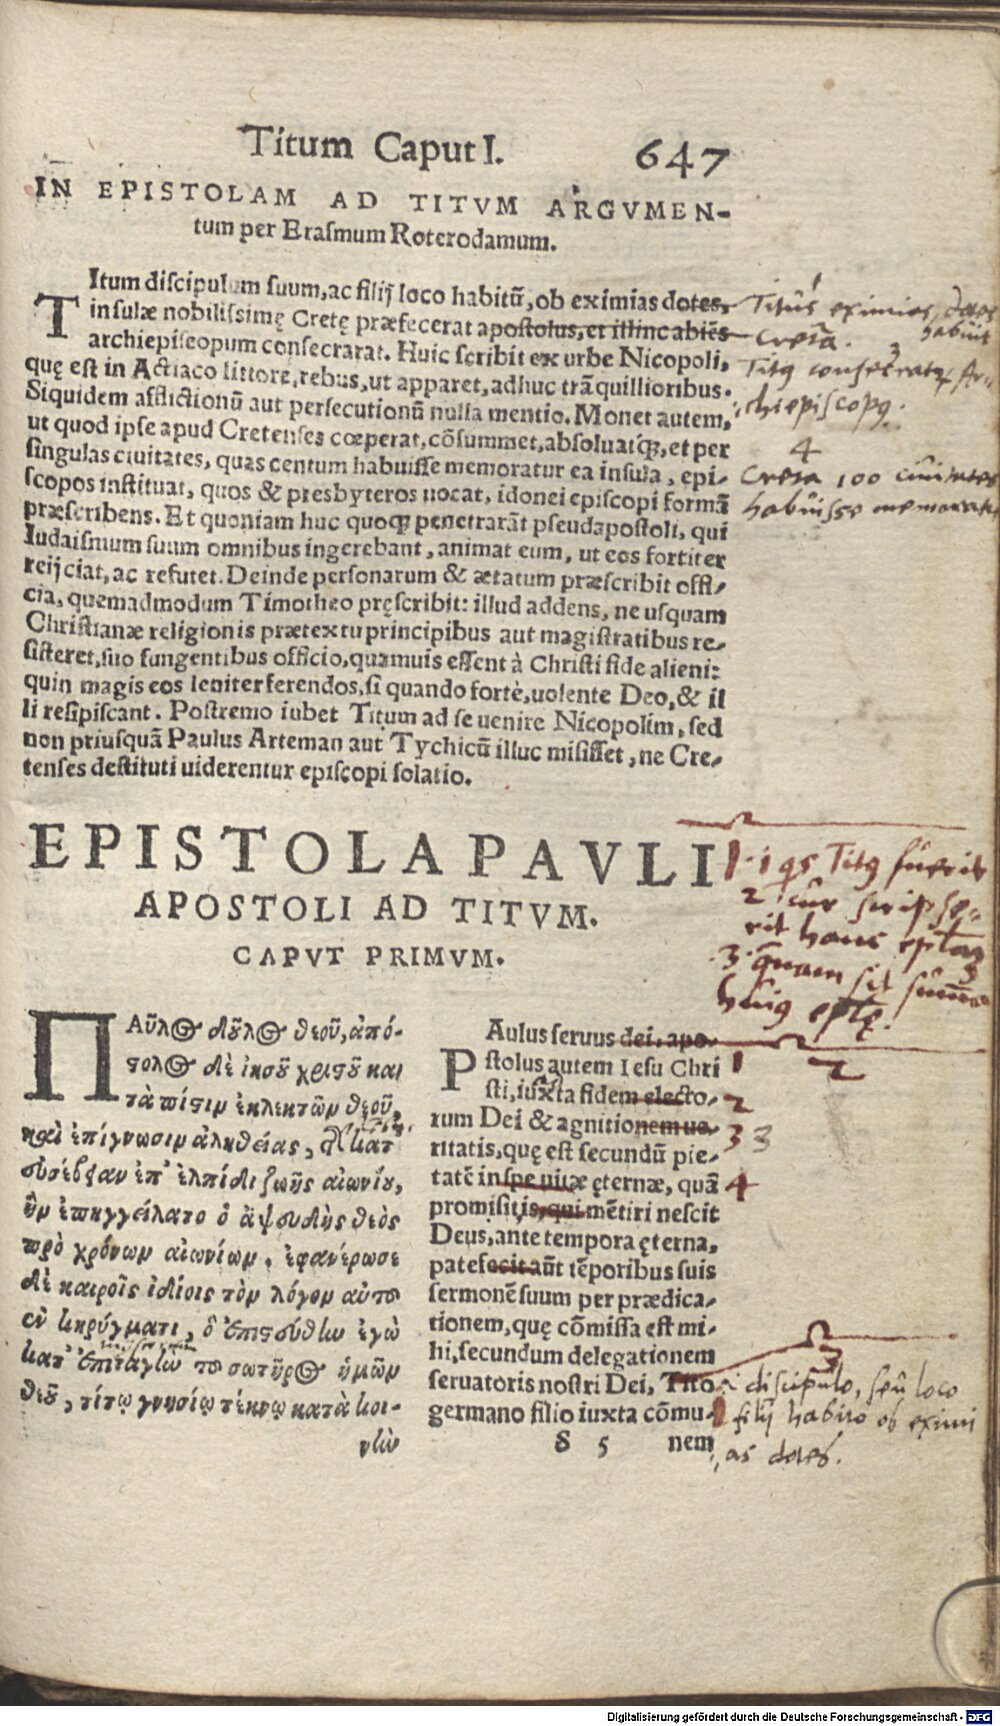 Titum Caput I. 647
IN EPISTOLAM AD TITVM ARGVMEN-
tum per Erasmum Roterodamum.
TItum discipulum suum, ac filij loco habitũ, ob eximias dotes,
insulæ nobilissimę Cretę præfecerat apostolus, et illinc abiẽs
archiepiscopum consecrarat. Huic scribit ex urbe Nicopoli,
quę est in Actiaco littore, rebus, ut apparet, adhuc trãquillioribus.
Siquidem afflictionũ aut persecutionũ nulla mentio. Monet autem,
ut quod ipse apud Cretenses cœperat, cõsummet, absoluatq́ꝫ, et per
singulas ciuitates, quas centum habuisse memoratur ea insula, epi-
scopos instituat, quos & presbyteros uocat, idonei episcopi formã
præscribens. Et quoniam huc quoqꝫ penetrarãt pseudapostoli, qui
Iudaismum suum omnibus ingerebant, animat eum, ut eos fortiter
reijciat, ac refutet. Deinde personarum & ætatum præscribit offi-
cia, quemadmodum Timotheo pręscribit: illud addens, ne usquam
Christianæ religionis prætextu principibus aut magistratibus re-
sisteret, suo fungentibus officio, quamuis essent à Christi fide alieni:
quin magis eos leniter ferendos, si quando fortè, uolente Deo, & il
li resipiscant. Postremo iubet Titum ad se uenire Nicopolim, sed
non priusquã Paulus Arteman aut Tychicũ illuc misisset, ne Cre-
tenses destituti uiderentur episcopi solatio.
1
Titus eximias dotes
habuit
Creta. 3
Titus consecratus Ar-
chiepiscopus.
4
Creta 100 civitates
habuisse memoratur
EPISTOLA PAVLI
APOSTOLI AD TITVM.
CAPVT PRIMVM.
1 · 1 qs Titus fuerit
2 cur scripse-
rit hanc eplãm
3 quam sit summa
huius eplę.
ΠΑῦλος δοῦλος θεοῦ, ἀπό-
στολος δὲ ἰησοῦ χριστοῦ κατ
τὰ πίστιν ἐκλεκτῶν θεοῦ,
καὶ ἐπίγνωσιν ἀληθείας, τῆς κατ'
εὐσέβειαν ἐπ' ἐλπίδι ζωῆς αἰωνίου,
ἣν ἐπηγγείλατο ὁ ἀψευδὴς θεὸς
πρὸ χρόνων αἰωνίων, ἐφανέρωσε
δὲ καιροῖς ἰδίοις τὸν λόγον αὐτοῦ
ἐν κηρύγματι, ὃ ἐπιστεύθην ἐγὼ
κατ' ἐπιταγὴν τοῦ σωτῆρος ἡμῶν
θεοῦ, τίτῳ γνησίῳ τέκνῳ κατὰ κοι-
νὴν
PAulus seruus dei, apo-
stolus autem Iesu Chri
sti, iuxta fidem electo-
rum Dei & agnitionem ue-
ritatis, quę est secundũ pie-
tatẽ in spe uitæ ęternæ, quã
promisit is, qui mẽtiri nescit
Deus, ante tempora ęterna,
patefecit aũt tẽporibus suis
sermonẽ suum per prædica-
tionem, quę cõmissa est mi-
hi, secundum delegationem
seruatoris nostri Dei, Tito
germano filio iuxta cõmu-
S 5 nem
1
2
2
3 3
4
3
discipulo, seu loco
filij habito ob eximi
as dotes.
Digitalisierung gefördert durch die Deutsche Forschungsgemeinschaft - DFG